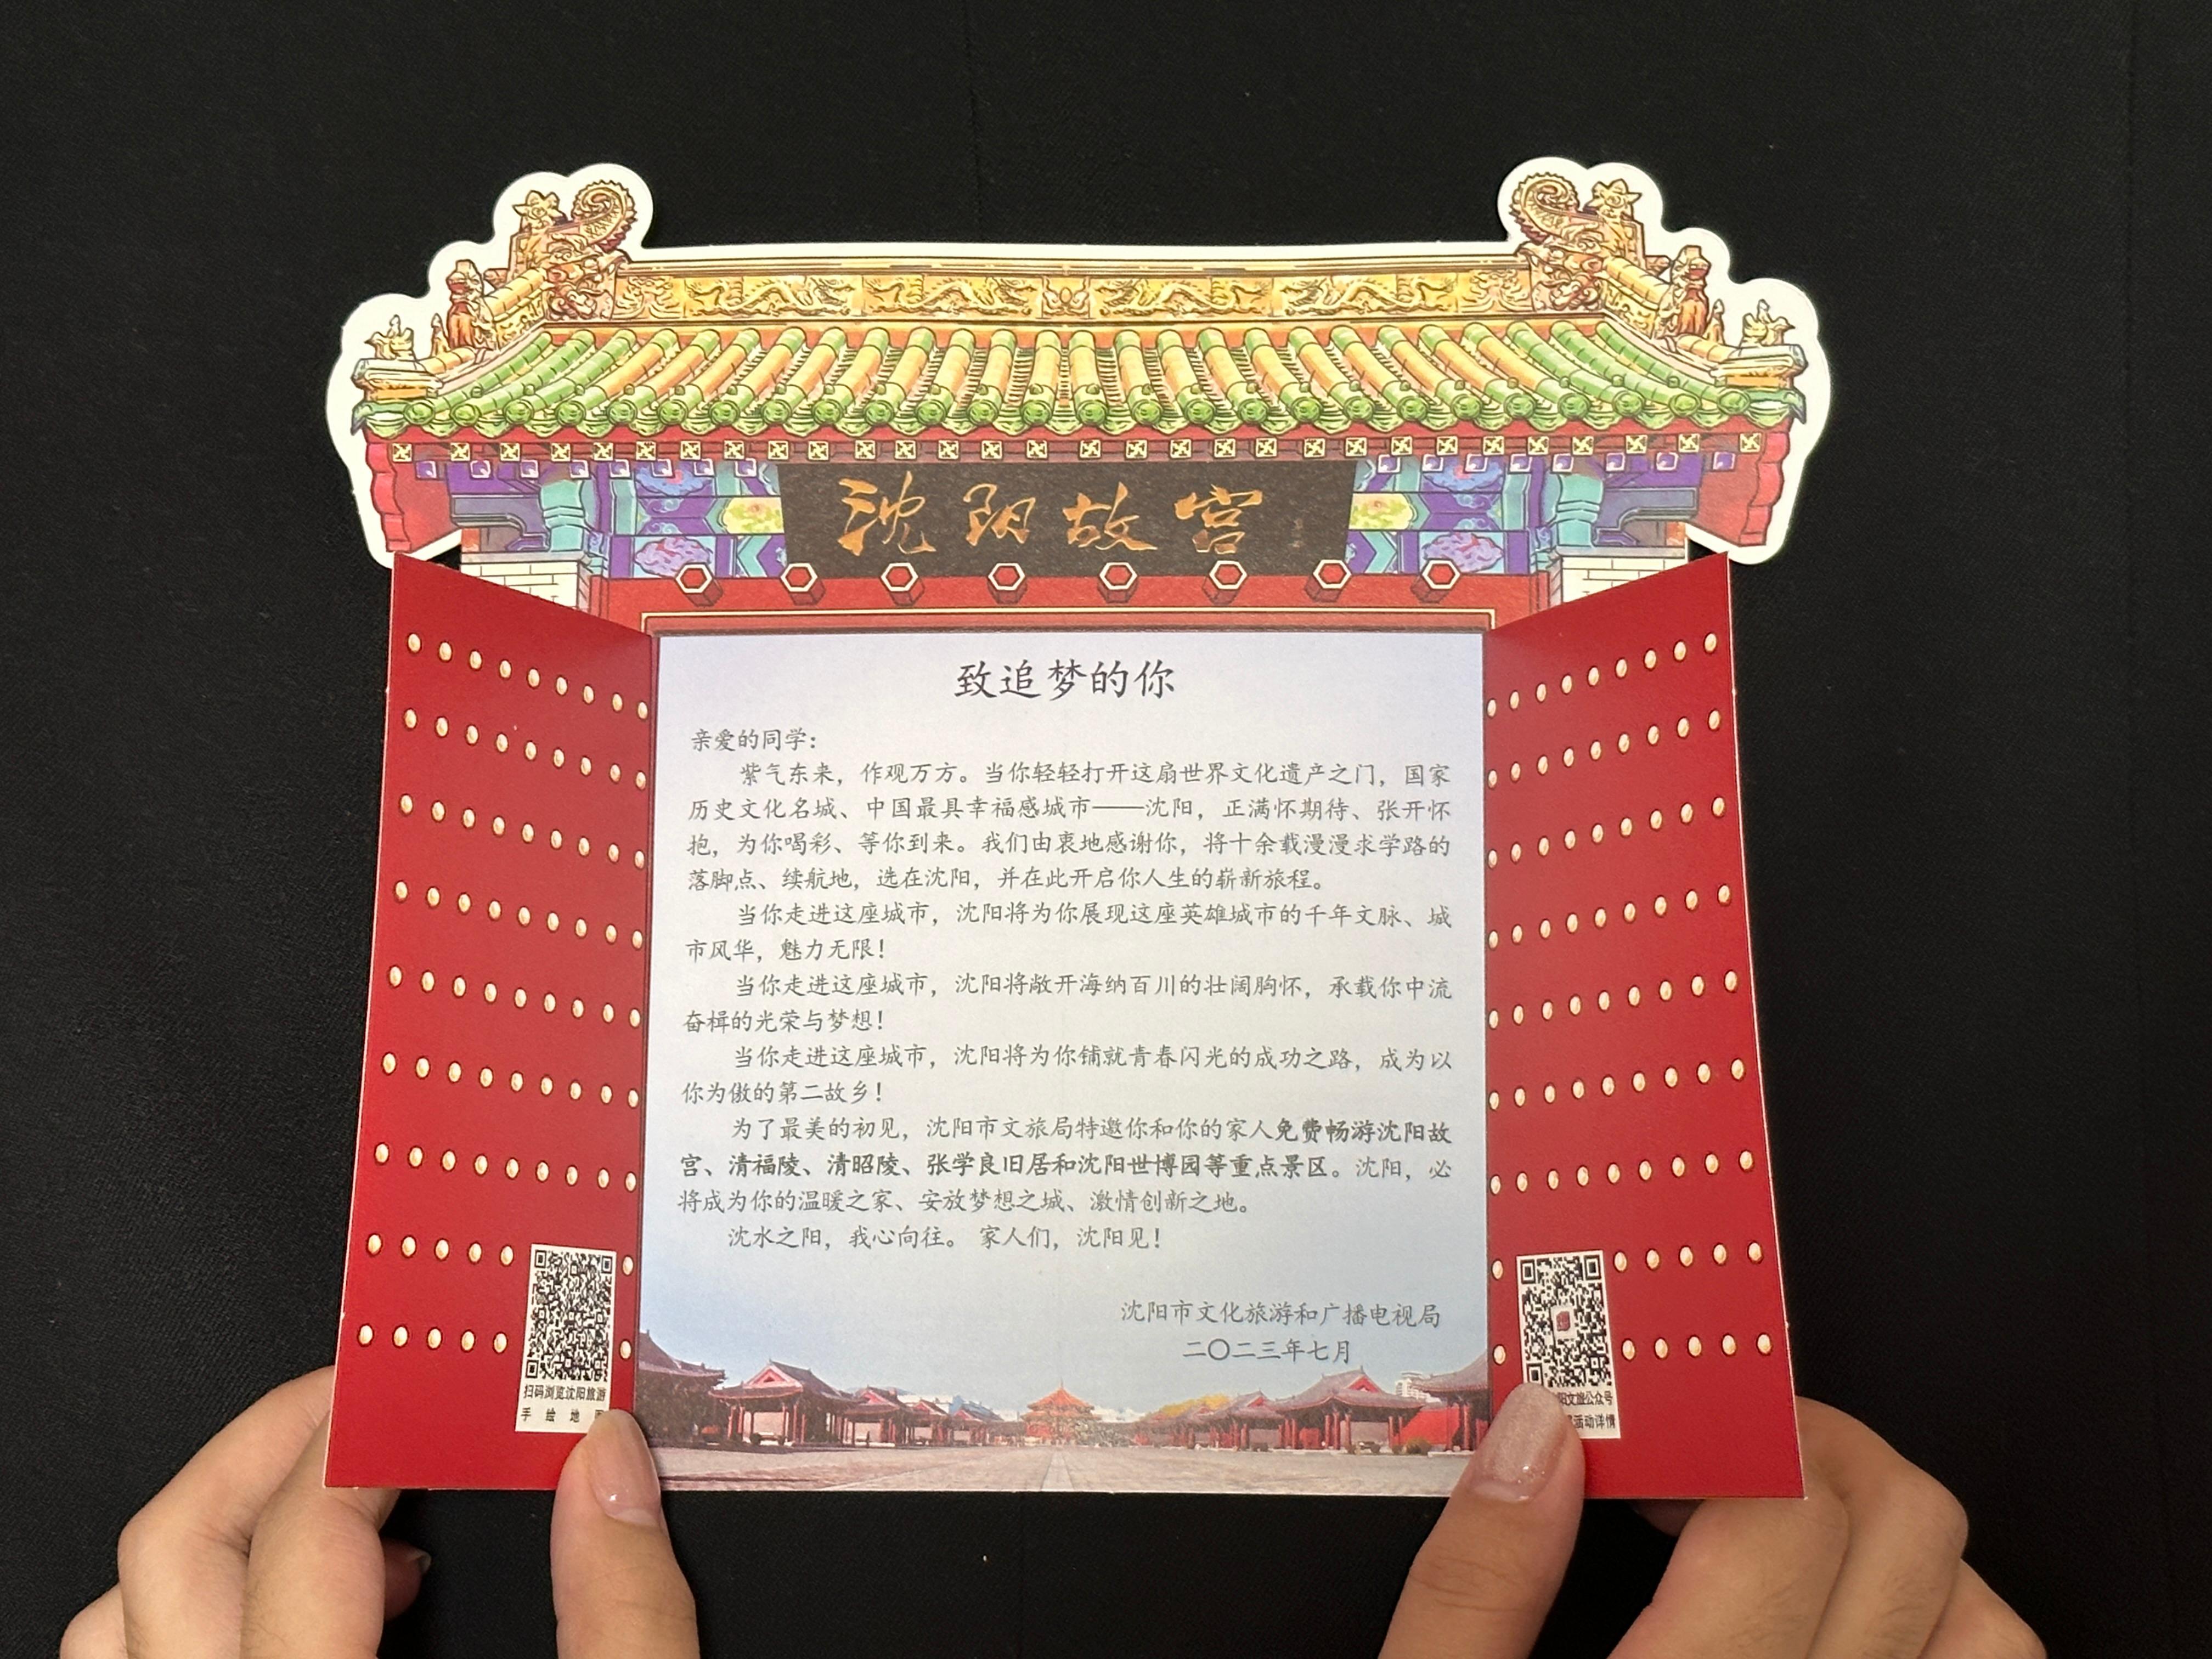 沈阳故宫
致追梦的你
亲爱的同学：
紫气东来，作观万方。当你轻轻打开这扇世界文化遗产之门，国家
历史文化名城、中国最具幸福感城市——沈阳，正满怀期待、张开怀
抱，为你喝彩、等你到来。我们由衷地感谢你，将十余载漫漫求学路的
落脚点、续航地，选在沈阳，并在此开启你人生的崭新旅程。
当你走进这座城市，沈阳将为你展现这座英雄城市的千年文脉、城
市风华，魅力无限！
当你走进这座城市，沈阳将敞开海纳百川的壮阔胸怀，承载你中流
奋楫的光荣与梦想！
当你走进这座城市，沈阳将为你铺就青春闪光的成功之路，成为以
你为傲的第二故乡！
为了最美的初见，沈阳市文旅局特邀你和你的家人免费畅游沈阳故
宫、清福陵、清昭陵、张学良旧居和沈阳世博园等重点景区。沈阳，必
将成为你的温暖之家、安放梦想之城、激情创新之地。
沈水之阳，我心向往。 家人们，沈阳见！
沈阳市文化旅游和广播电视局
二〇二三年七月
扫码浏览沈阳旅游
手绘地图
阳文旅公众号
活动详情